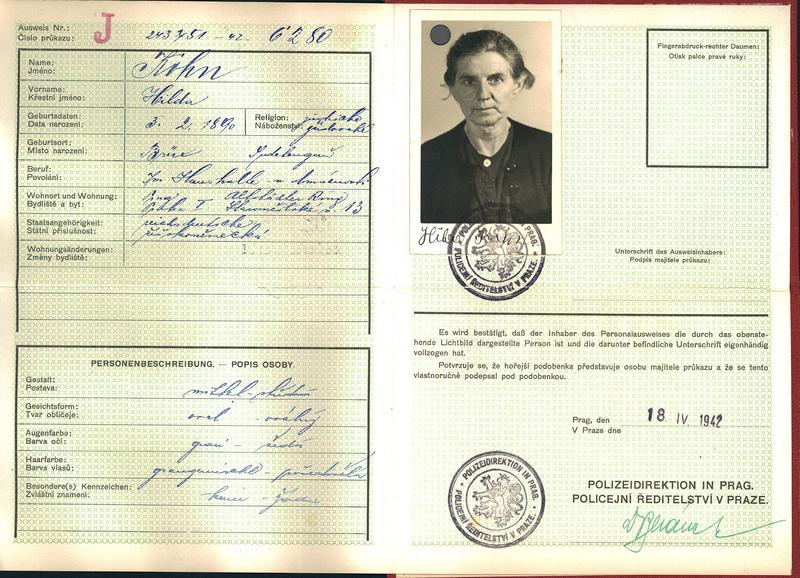 Ausweis Nr.:
Číslo průkazu:
J
243751 - 42
6280
Name:
Jméno:
Köhn
Vorname:
Křestní jméno:
Hilda
Geburtsdaten:
Data narození:
3. 2. 1890
Religion:
Náboženství:
jüdische
židovské
Geburtsort:
Místo narození:
Brüx Sudetengau
Beruf:
Povolání:
Im Haushalte - v domácnosti
Wohnort und Wohnung:
Bydliště a byt:
Prag I Altstädter Ring
Praha I Staroměstské n. 13
Staatsangehörigkeit:
Státní příslušnost:
reichsdeutsche
říškoněmecká
Wohnungsänderungen:
Změny bydliště:
PERSONENBESCHREIBUNG. — POPIS OSOBY
Gestalt:
Postava:
mittel - střední
Gesichtsform:
Tvar obličeje:
oval - oválný
Augenfarbe:
Barva očí:
grau - šedé
Haarfarbe:
Barva vlasů:
graugemischt - prošedivělá
Besondere(s) Kennzeichen:
Zvláštní znamení:
keine - žádné
Fingerabdruck-rechter Daumen:
Otisk palce pravé ruky:
POLIZEIDIREKTION IN PRAG.
POLICEJNÍ ŘEDITELSTVÍ V PRAZE.
Unterschrift des Ausweisinhabers:
Podpis majitele průkazu:
Es wird bestätigt, daß der Inhaber des Personalausweises die durch das obenste-
hende Lichtbild dargestellte Person ist und die darunter befindliche Unterschrift eigenhändig
vollzogen hat.
Potvrzuje se, že hořejší podobenka představuje osobu majitele průkazu a že se tento
vlastnoručně podepsal pod podobenkou.
Prag, den
V Praze dne
18 IV. 1942
POLIZEIDIREKTION IN PRAG.
POLICEJNÍ ŘEDITELSTVÍ V PRAZE.
POLIZEIDIREKTION IN PRAG.
POLICEJNÍ ŘEDITELSTVÍ V PRAZE.